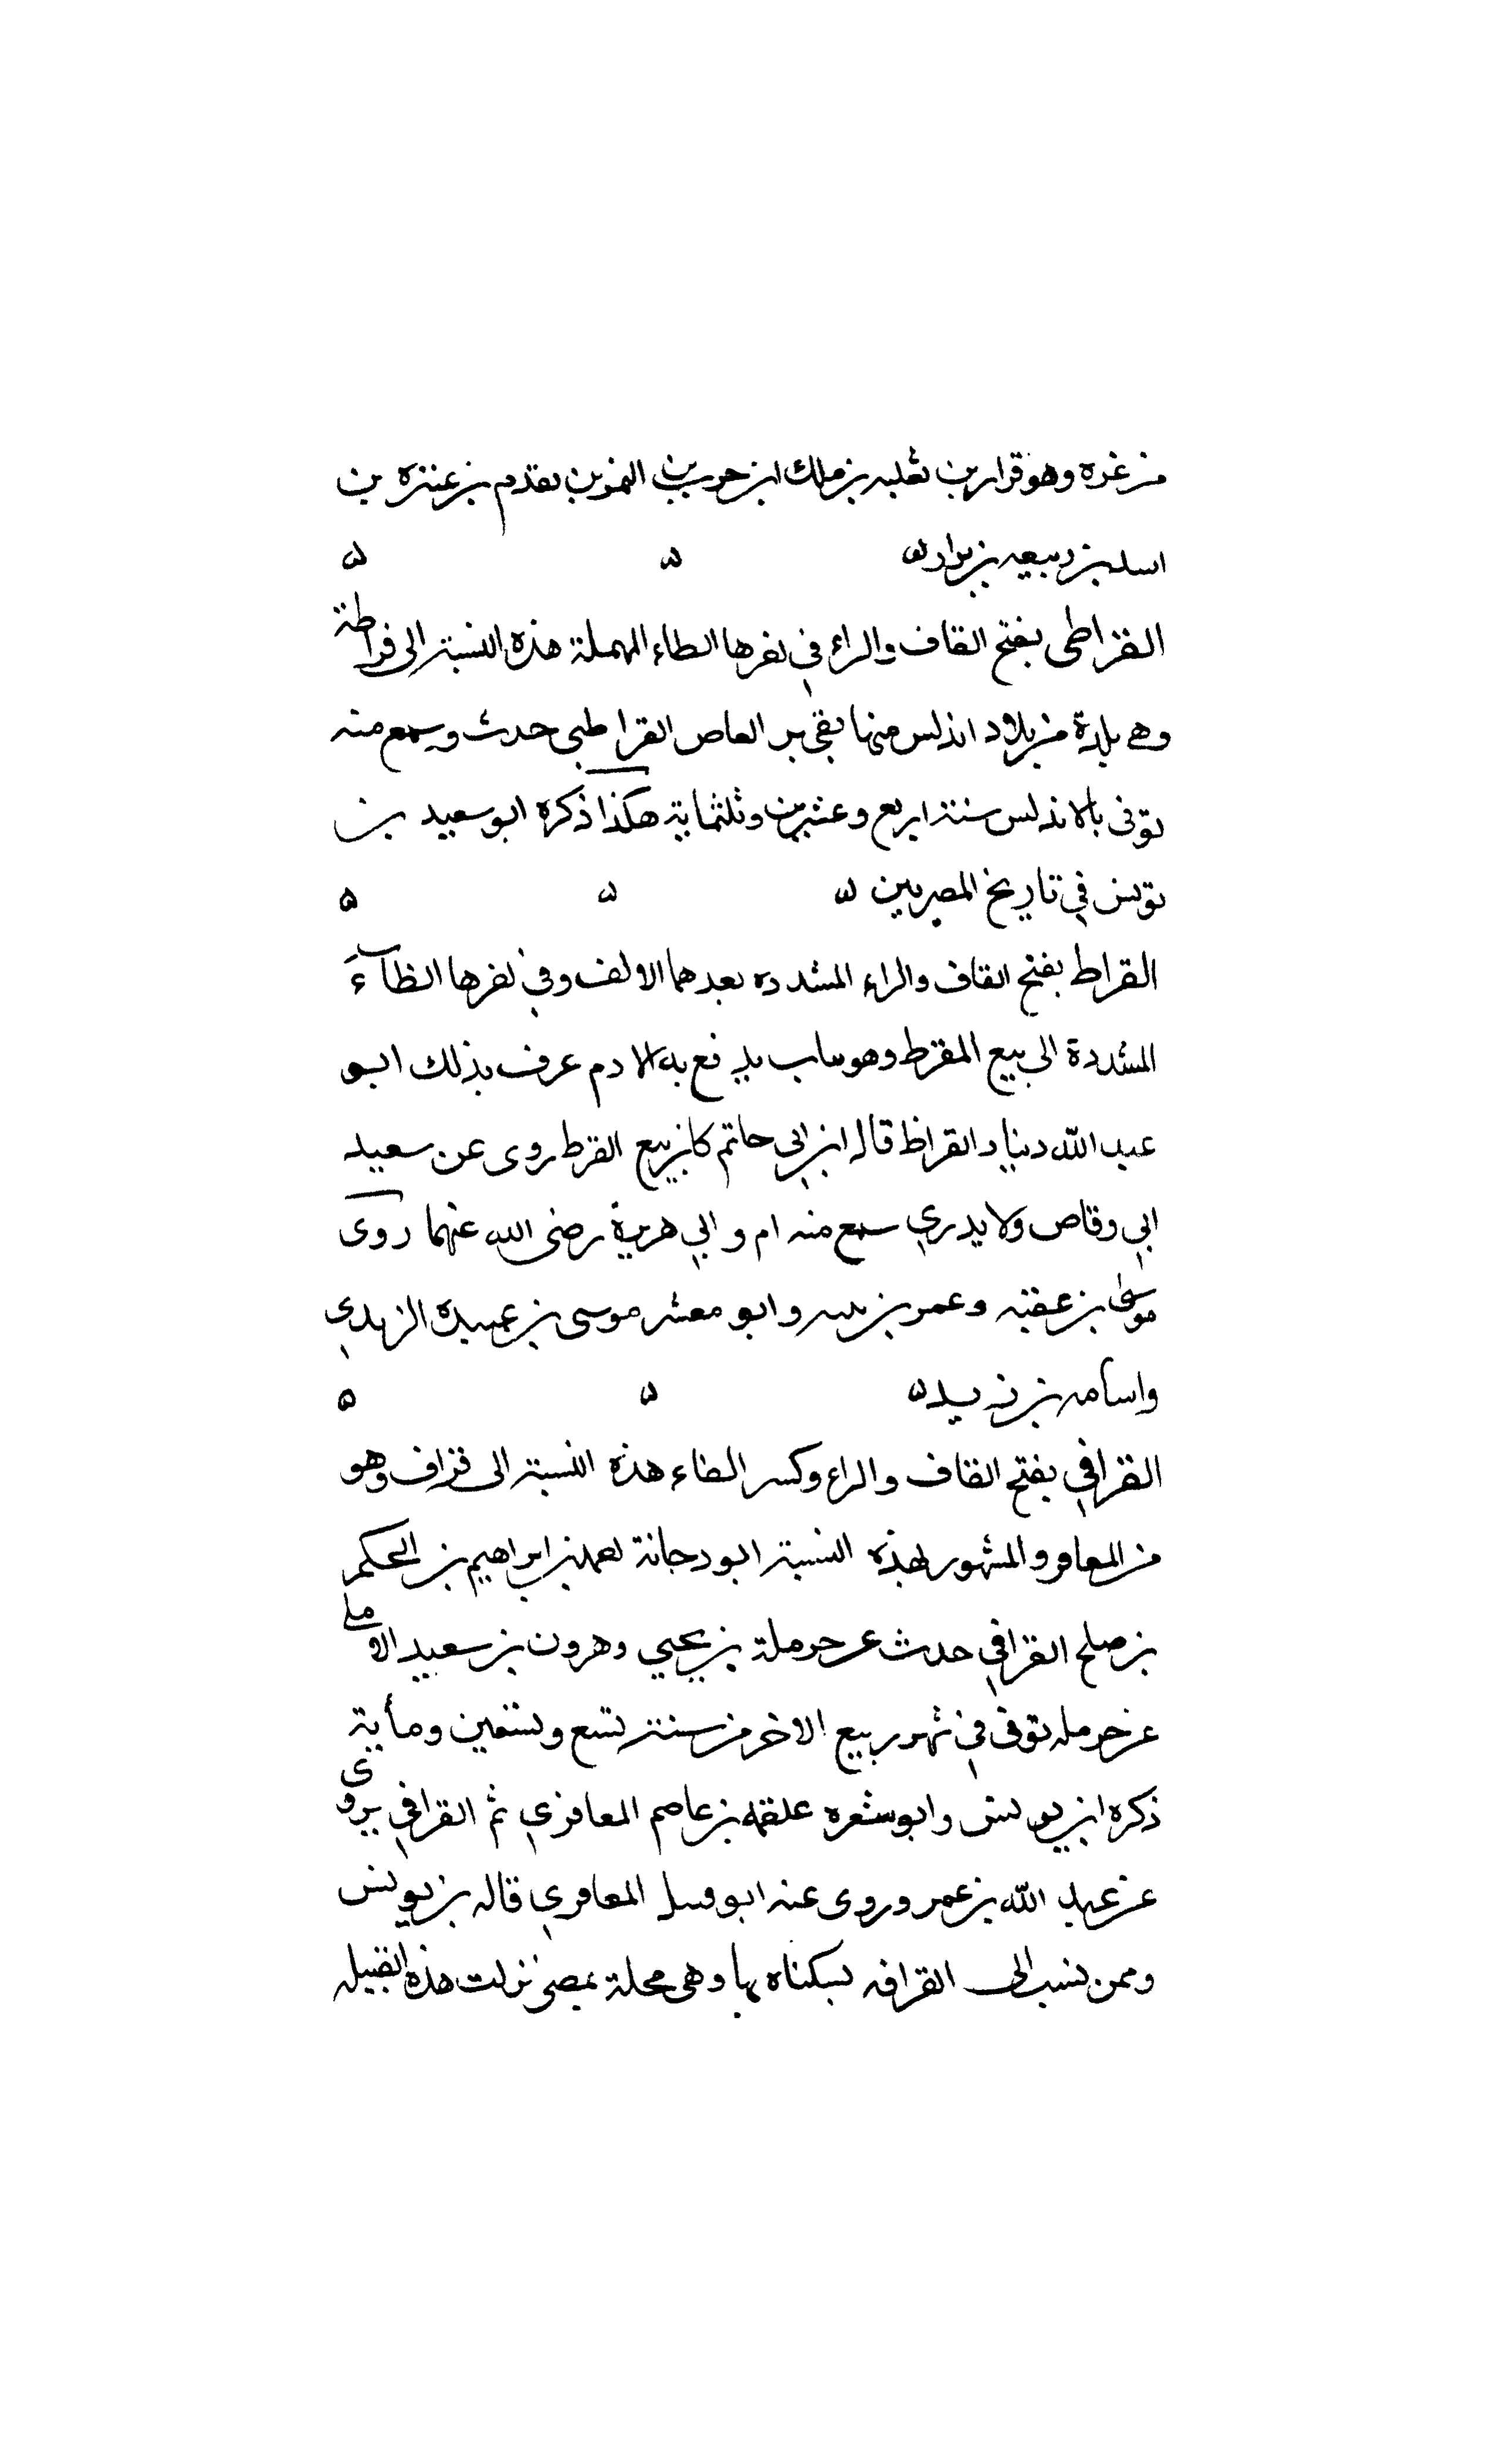 من عنزه وهو قرار بن ثعلبه بن ملك ابن حرب بن النمر بن يقدم بن عنزه بن
اسد بن ربيعه بن نزار ۵ ۵ ۵
القراطى بفتح القاف والراء في اخرها الطاء المهملة هذه النسبة الى قراطة
وهى بلدة من بلاد اندلس منها بقى بن العاص القراطى حدث وسمع منه
توفى بالاندلس سنة اربع وعشرين وثلثماية هكذا ذكره ابو سعيد بن
يونس في تاريخ المصريين ۵ ۵ ۵
القراط بفتح القاف والراء المشدده بعدهما الالف وفي اخرها الظاء
المشددة الى بيع المقرط وهو يدفع به الادم عرف بذلك ابو
عبد الله دينار القراظ قال ابن ابي حاتم كان يبيع القرط روى عن سعيد
ابي وقاص ولا يدري سمع منه ام و ابي هريرة رضى الله عنهما روى
موسى بن عقبه وعمر بن وابو معشر موسى بن عبيدة الزبدي
واسامه بن زيد ۵ ۵ ۵
القرافي بفتح القاف والراء وكسر الفاء هذه النسبة الى قراف وهو
من المعافر والمشهور بهذه النسبة ابو دجانة احمد بن ابراهيم بن الحكم
بن صلح القرافي حدث عن حرملة بن يحيي وهرون بن سعيد الاملى
عن حرمله توفى في شهر ربيع الاخر من سنة تسع وتسعين ومأية
ذكره ابن يونس وابو شعره علقمه بن عاصم المعافري ثم القرافي يروى
عن عبد الله بن عمر وروى عنه ابو قبيل المعافري قاله بن يونس
وممن ينسب الى القرافه لسكناه بها وهى محلة بمصر نزلت هذه القبيله